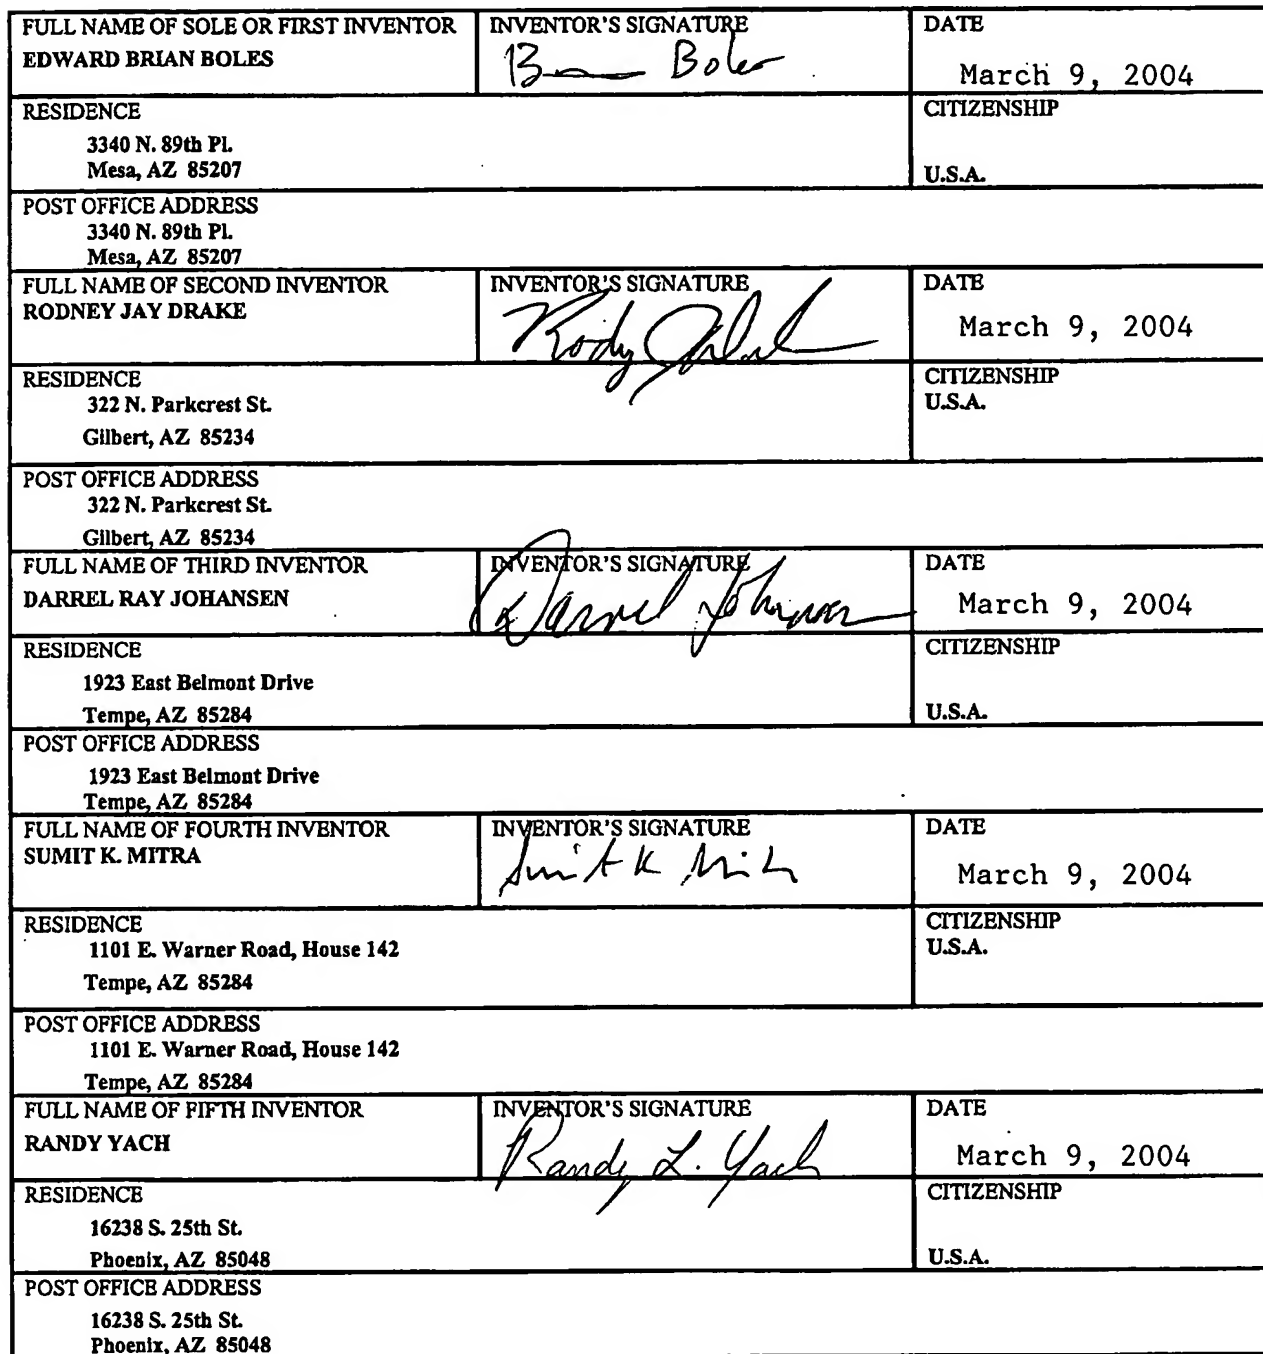 FULL NAME OF SOLE OR FIRST INVENTOR
EDWARD BRIAN BOLES
INVENTOR'S SIGNATURE
Boles
DATE
March 9, 2004
RESIDENCE
3340 N. 89th Pl.
Mesa, AZ 85207
CITIZENSHIP
U.S.A.
POST OFFICE ADDRESS
3340 N. 89th Pl.
Mesa, AZ 85207
FULL NAME OF SECOND INVENTOR
RODNEY JAY DRAKE
INVENTOR'S SIGNATURE
DATE
March 9, 2004
RESIDENCE
322 N. Parkcrest St.
Gilbert, AZ 85234
CITIZENSHIP
U.S.A.
POST OFFICE ADDRESS
322 N. Parkcrest St.
Gilbert, AZ 85234
FULL NAME OF THIRD INVENTOR
DARREL RAY JOHANSEN
INVENTOR'S SIGNATURE
Darrel Johansen
DATE
March 9, 2004
RESIDENCE
1923 East Belmont Drive
Tempe, AZ 85284
CITIZENSHIP
U.S.A.
POST OFFICE ADDRESS
1923 East Belmont Drive
Tempe, AZ 85284
FULL NAME OF FOURTH INVENTOR
SUMIT K. MITRA
INVENTOR'S SIGNATURE
Sumit K Mitra
DATE
March 9, 2004
RESIDENCE
1101 E. Warner Road, House 142
Tempe, AZ 85284
CITIZENSHIP
U.S.A.
POST OFFICE ADDRESS
1101 E. Warner Road, House 142
Tempe, AZ 85284
FULL NAME OF FIFTH INVENTOR
RANDY YACH
INVENTOR'S SIGNATURE
Randy L. Yach
DATE
March 9, 2004
RESIDENCE
16238 S. 25th St.
Phoenix, AZ 85048
CITIZENSHIP
U.S.A.
POST OFFICE ADDRESS
16238 S. 25th St.
Phoenix, AZ 85048